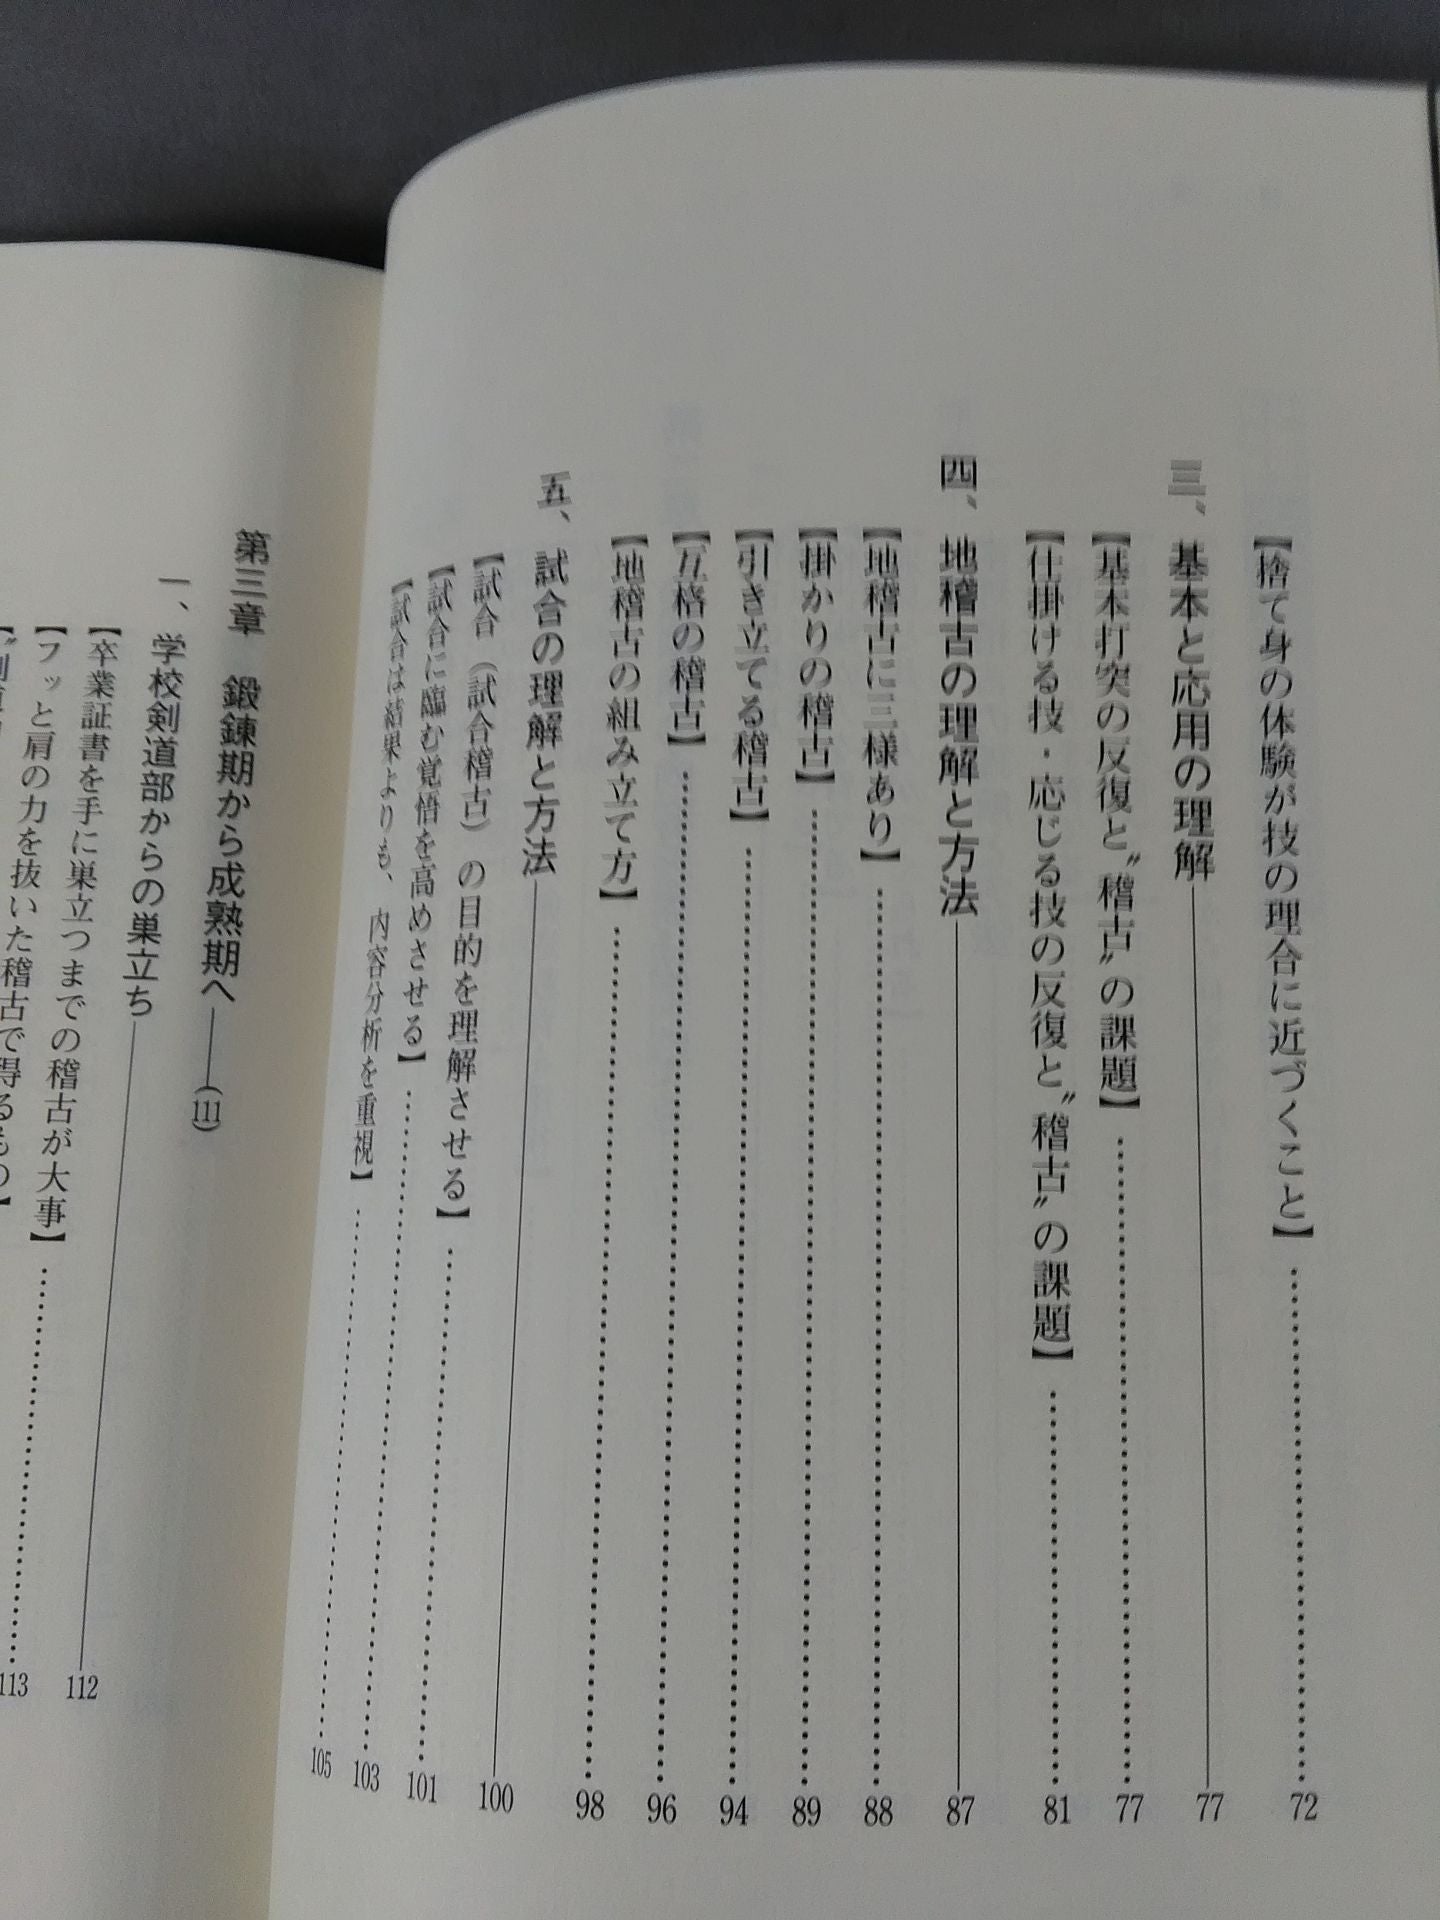 【捨て身の体験が技の理合に近づくこと】……72
三、基本と応用の理解――77
【基本打突の反復と〝稽古〟の課題】……77
【仕掛ける技・応じる技の反復と〝稽古〟の課題】……81
四、地稽古の理解と方法――87
【地稽古に三様あり】……88
【掛かりの稽古】……89
【引き立てる稽古】……94
【互格の稽古】……96
【地稽古の組み立て方】……98
五、試合の理解と方法――100
【試合（試合稽古）の目的を理解させる】……101
【試合に臨む覚悟を高めさせる】……103
【試合は結果よりも、内容分析を重視】……105
第三章 鍛錬期から成熟期へ――(111)
一、学校剣道部からの巣立ち――112
【卒業証書を手に巣立つまでの稽古が大事】……113
【フッと肩の力を抜いた稽古で得るもの】